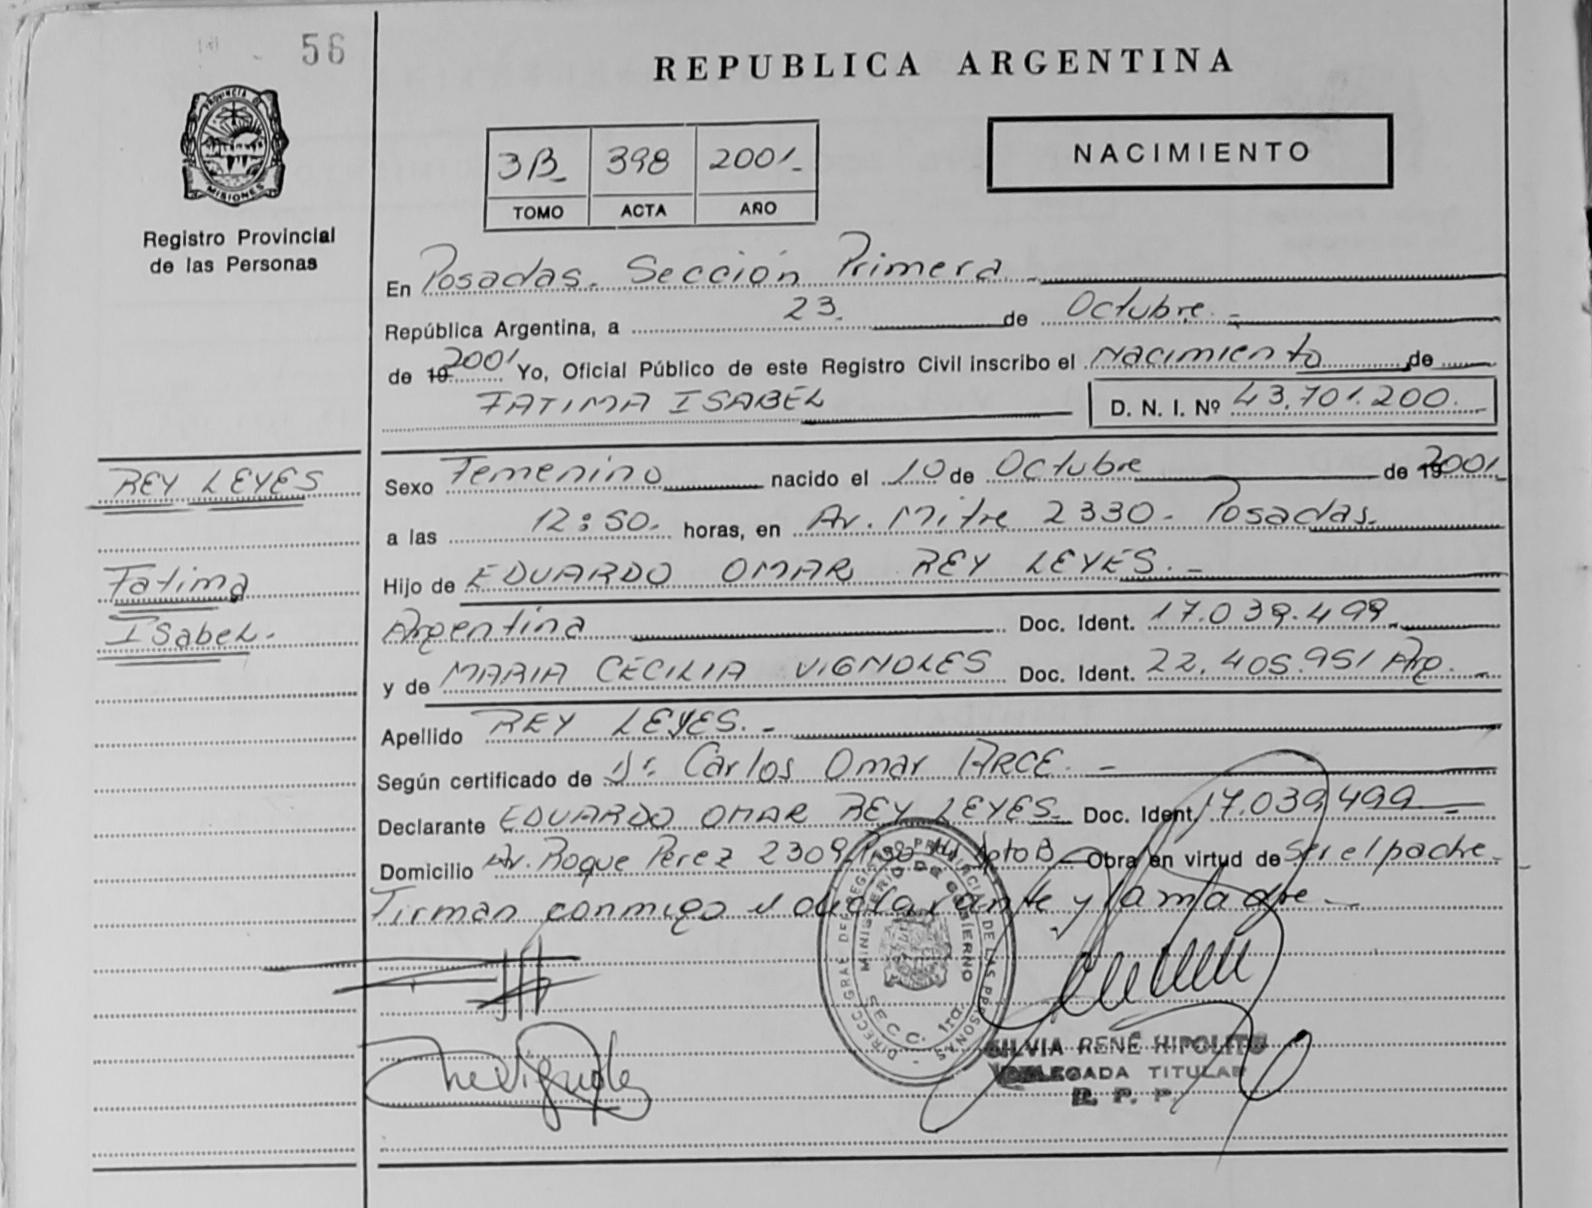 56
REPUBLICA ARGENTINA
PROVINCIA DE
MISIONES
Registro Provincial
de las Personas
3B_ 398 2001_
TOMO ACTA AÑO
NACIMIENTO
En Posadas. Sección Primera
República Argentina, a 23. de Octubre.
de 19 2001 Yo, Oficial Público de este Registro Civil inscribo el Nacimiento de
FATIMA ISABEL D. N. I. Nº 43.701.200.
REY LEYES
Fatima
Isabel.
Sexo Femenino nacido el 10 de Octubre de 19 2001
a las 12:50. horas, en Av. Mitre 2330- Posadas.
Hijo de EDUARDO OMAR REY LEYES.-
Argentina Doc. Ident. 17.039.499
y de MARIA CECILIA VIGNOLES Doc. Ident. 22.405.951 Arg.
Apellido REY LEYES.-
Según certificado de Dr. Carlos Omar ARCE.-
Declarante EDUARDO OMAR REY LEYES. Doc. Ident. 17.039.499
Domicilio Av. Roque Perez 2309 Apto B Obra en virtud de ser el padre.
Firman conmigo el declarante y la madre.-
DIRECC. GRAL DEL REGISTRO PROVINCIAL DE LAS PERSONAS
MINISTERIO DE GOBIERNO
SECC. 1ra.
SILVIA RENÉ HIPOLITO
DELEGADA TITULAR
R. P. P.